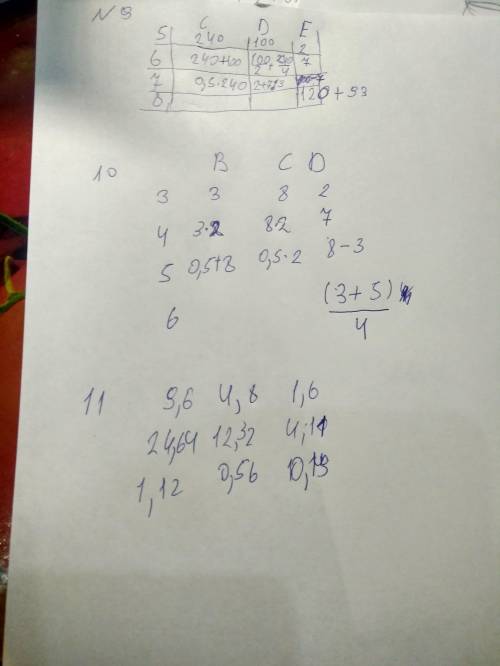 N 9
C D E
5 240 100 2
6 240+100 7
7 95·240 2+7,13
8 120+93
10 B C D
3 3 8 2
4 3·2 8·2 7
5 0,5+3 0,5·2 8-3
6 (3+5)
4
11 9,6 4,8 1,6
24,64 12,32 4,11
1,12 0,56 0,19